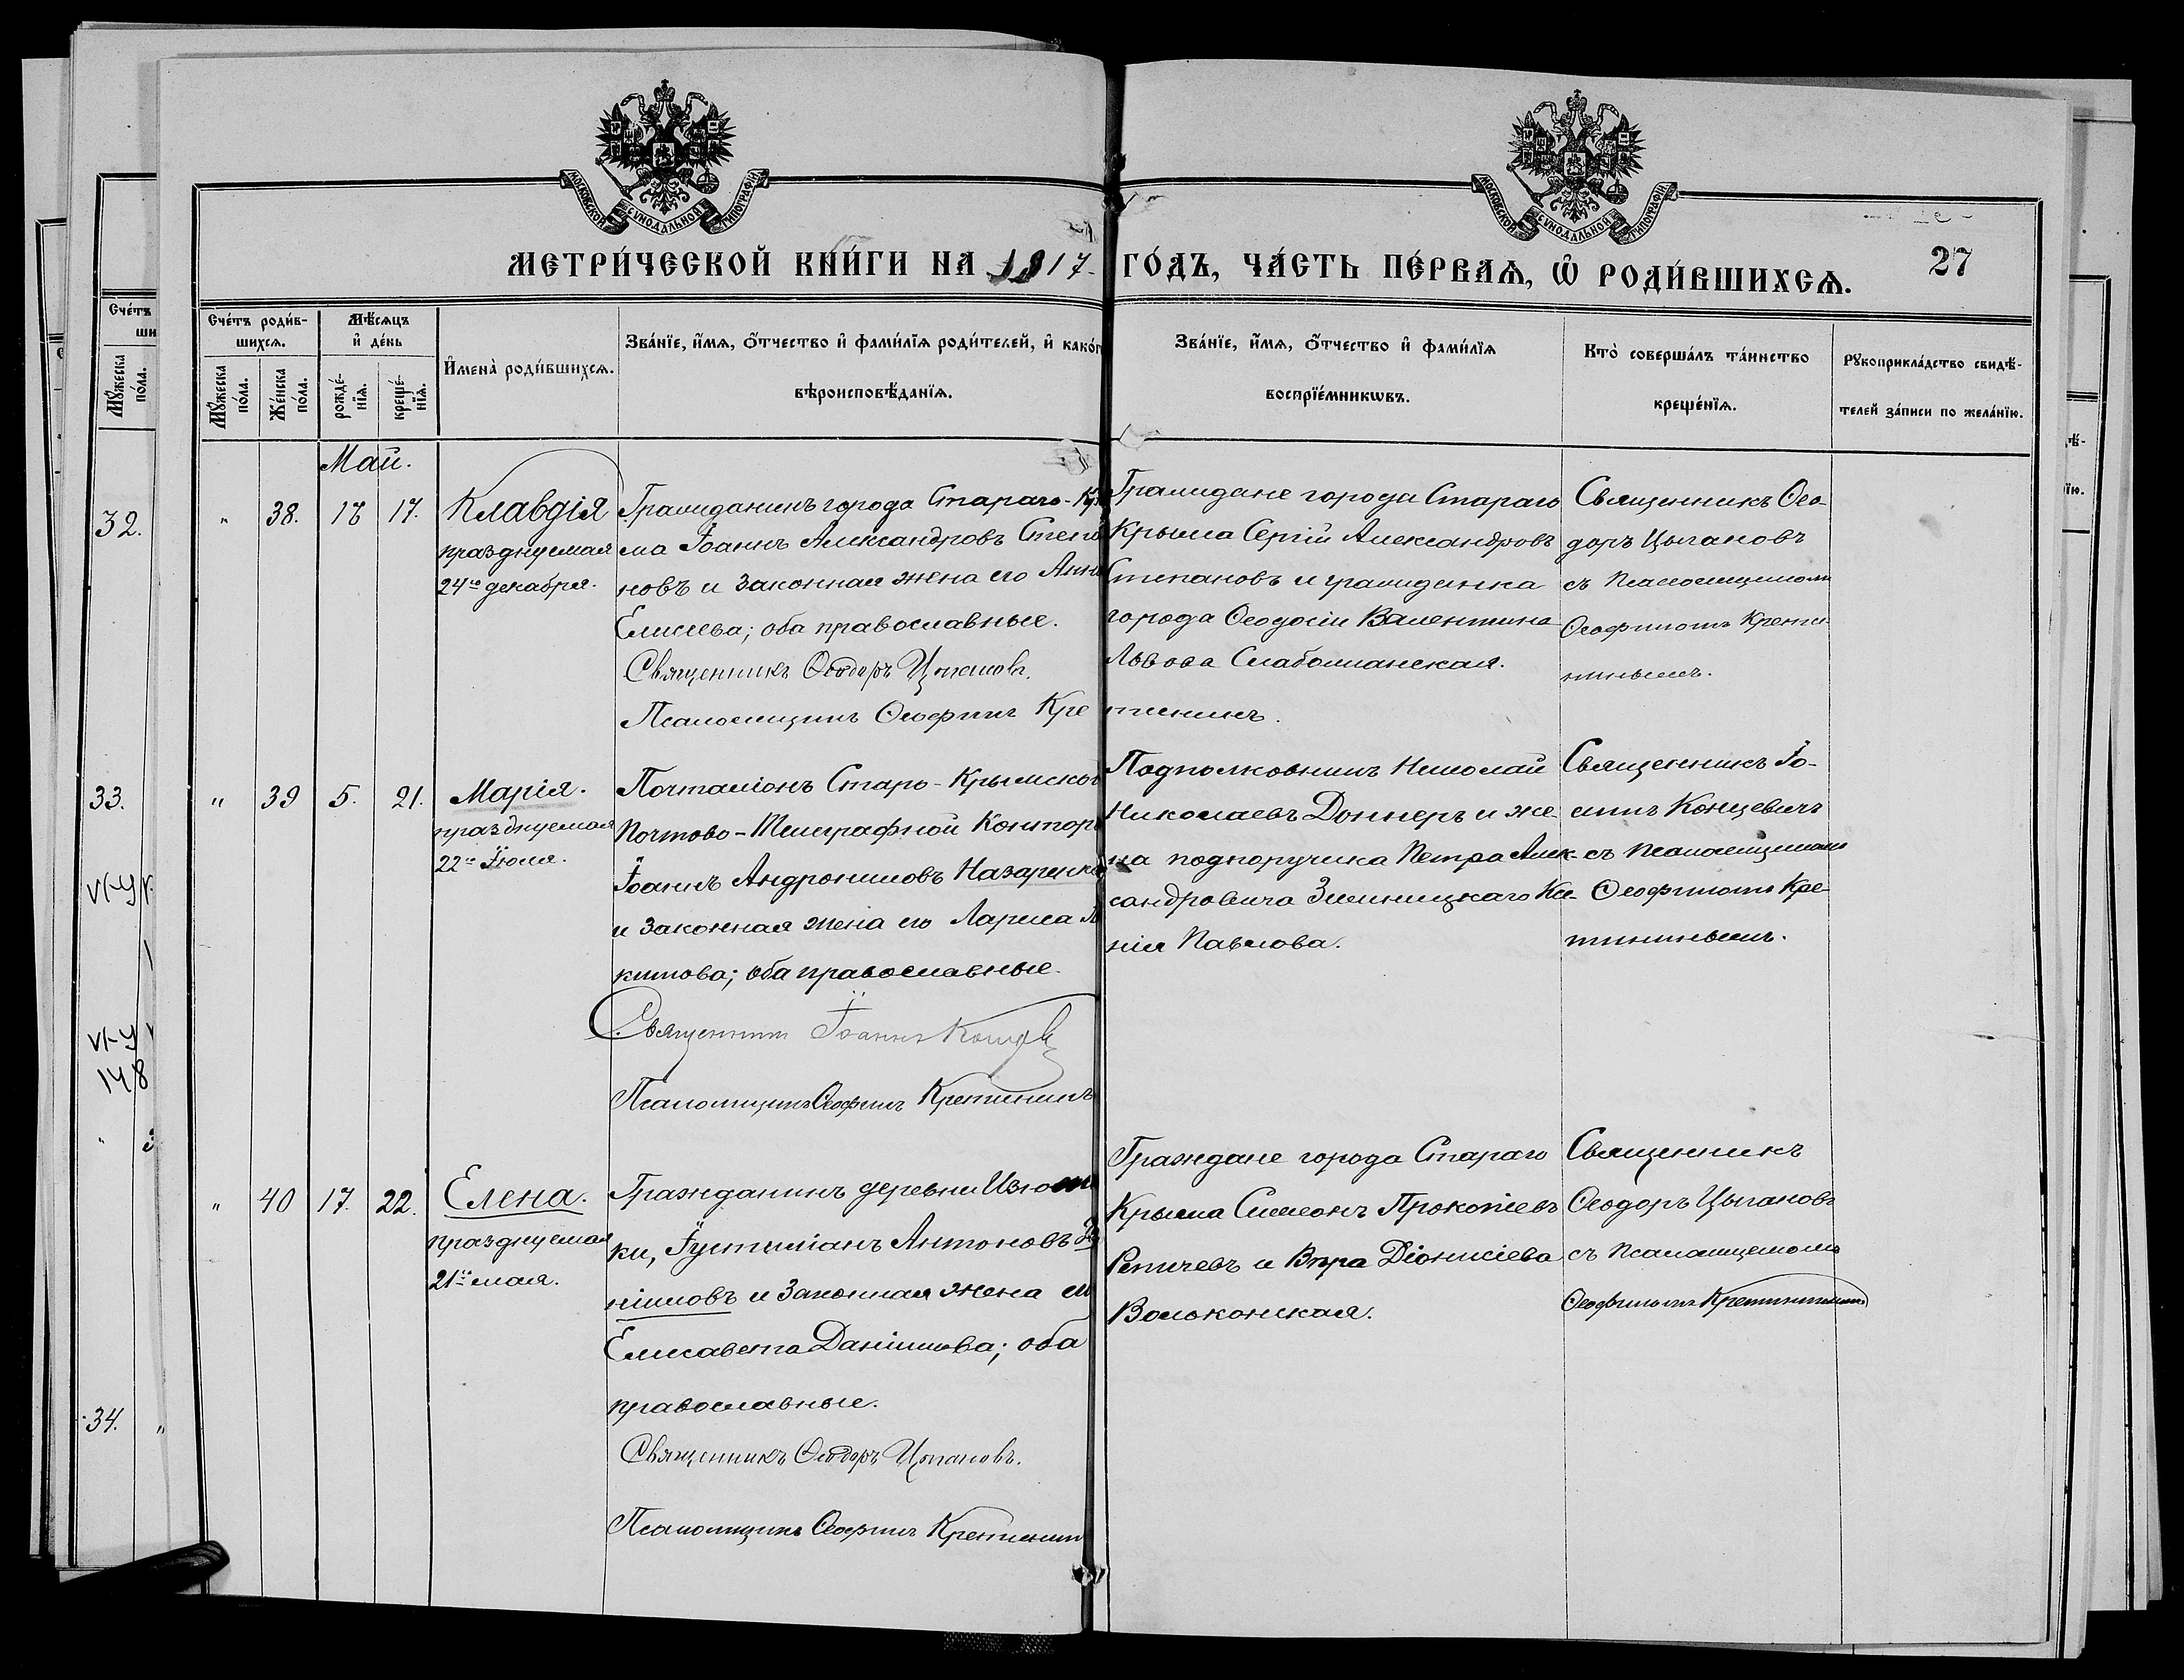 МОСКОВСКОЙ СѴНОДАЛЬНОЙ ТИПОГРАФІИ
МОСКОВСКОЙ СѴНОДАЛЬНОЙ ТИПОГРАФІИ
МЕТРИ́ЧЕСКОЙ КНИ́ГИ НА 1917
ГО́ДЪ, ЧА́СТЬ ПЕ́РВАѦ, Ѽ РОДИ́ВШИХСѦ.
27
Сче́тъ роди́в-
шихсѧ.
Мꙋ́жеска по́ла.
Же́нска по́ла.
Мѣ́сѧцъ
и҆ де́нь
рожде́-
нїѧ.
креще́-
нїѧ.
И҆мена̀ роди́вшихсѧ.
Зва́нїе, и҆́мѧ, ѻ҆́тчество и҆ фами́лїѧ роди́телей, и҆ како́г
вѣроисповѣ́данїѧ.
Зва́нїе, и҆́мѧ, ѻ҆́тчество и҆ фами́лїѧ
воспрїе́мникѡвъ.
Кто̀ соверша́лъ та́инство
креще́нїѧ.
Рꙋкоприкла́дство свидѣ́-
телей за́писи по жела́нїю.
Сче́тъ
ши
Мꙋ́жеска
по́ла.
32.
33.
34.
Май.
" 38. 16 17. Клавдія
празднуемая
24го декабря.
Гражданинъ города Стараго-Кры
ма Іоаннъ Александровъ Степа
новъ и законная жена его Анна
Елисеева; оба православные.
Священникъ Ѳеодоръ Цыгановъ.
Псаломщикъ Ѳеофилъ Кре
тининъ.
Граждане города Стараго
Крыма Сергій Александровъ
Степановъ и гражданка
города Ѳеодосіи Валентина
Львова Слабошанская.
Священникъ Ѳео-
доръ Цыгановъ
съ Псаломщикомъ
Ѳеофиломъ Крети-
нинымъ.
" 39 5. 21. Марія.
празднуемая
22го Іюля.
Почталіонъ Старо-Крымской
Почтово-Телеграфной Конторы
Іоаннъ Андрониковъ Назаренко
и законная жена его Лариса
китова; оба православные.
Священник Іоаннъ
Псаломщикъ Ѳеофилъ Кретининъ
Подполковникъ Николай
Николаевъ Доннеръ и же-
на подпоручика Петра Алек-
сандровича Зелиницкаго Ксе-
нія Павлова.
Священникъ Іо-
аннъ Концевичъ
съ Псаломщикомъ
Ѳеофиломъ Кре-
тининымъ.
" 40 17. 22. Елена.
празднуемая
21го мая.
Гражданинъ деревни Изюм
ки, Іустиніанъ Антоновъ
ніиловъ и законная жена его
Елисавета Даніилова; оба
православные.
Священникъ Ѳеодоръ Цыгановъ.
Псаломщикъ Ѳеофилъ Кретинин
Граждане города Стараго
Крыма Симеонъ Прокопіевъ
Репичевъ и Вѣра Діонисіева
Волконская.
Священникъ
Ѳеодоръ Цыгановъ
съ Псаломщикомъ
Ѳеофиломъ Кретининымъ